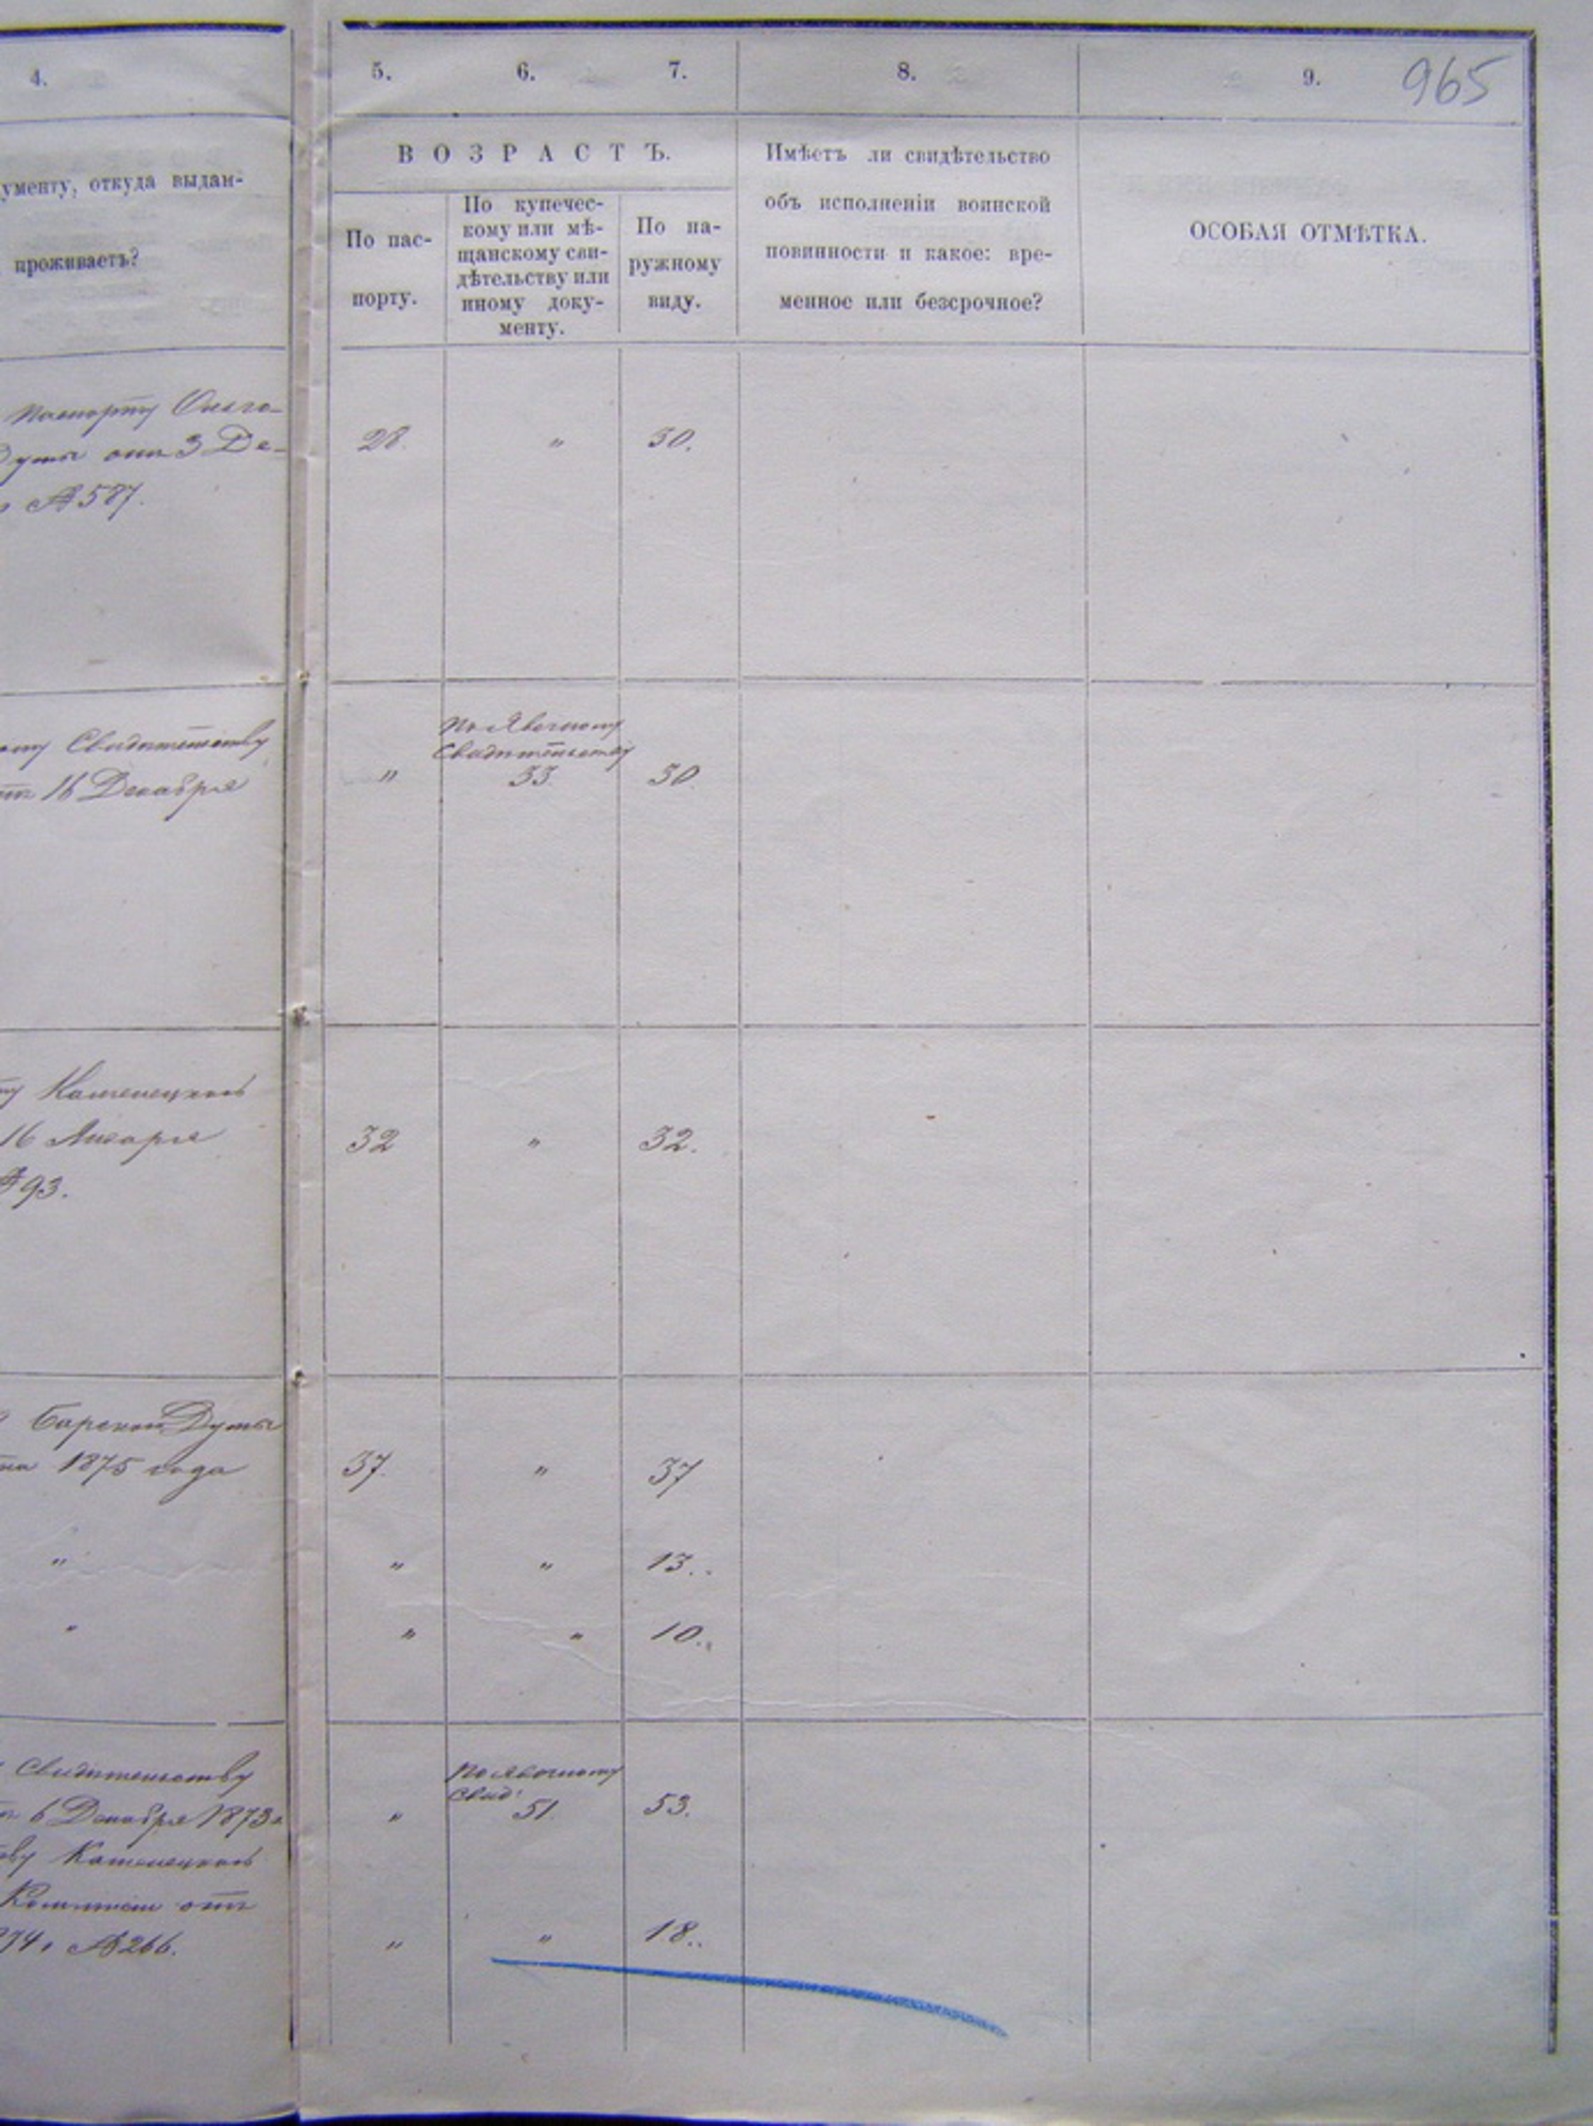 4. 5. 6. 7. 8. 9. 965
ВОЗРАСТЪ.
ументу, откуда выдан-
проживаетъ?
По пас-
порту.
По купечес-
кому или мѣ-
щанскому сви-
дѣтельству или
иному доку-
менту.
По на-
ружному
виду.
Имѣетъ ли свидѣтельство
объ исполненіи воинской
повинности и какое: вре-
менное или безсрочное?
ОСОБАЯ ОТМѢТКА.
Паспорту
Думы отъ 3 Де-
№ 587.
28. " 30.
Свидѣтельству
16 Декабря
" По Явочному
Свидѣтельству
33. 30
Каменецкой
16 Января
№ 93.
32 " 32.
Барской Думы
1875 года
37. " 37
" " " 13.
" " " 10.
Свидѣтельству
6 Декабря 1873 г
Каменецкой
отъ
74 г № 266.
" По явочному
Свид:
51. 53.
" " 18.